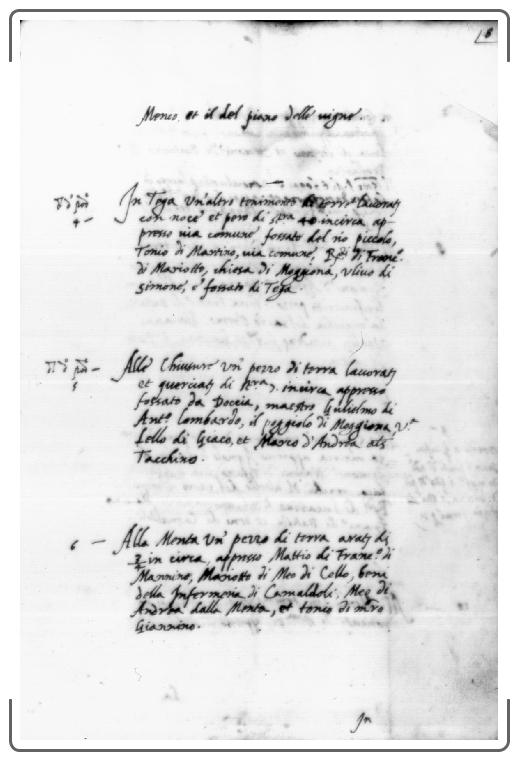 8
Menco, et il del piano delle vigne.
In Tega un'altro tenimento di terre lavorat
4 – con noce et pero di st.ra 40 incirca ap-
presso via comune fossato del rio piccolo,
Tonio di Martino, via comune, di Franc.o
di Mariotto, chiesa di Moggiona, Ulivo di
Simone, e fossato di Tega.
Alle Chiusure un pezzo di terra lavorat
5 et querciat di st.ra 7. incirca appresso
fossato da Doccia, maestro Gulielmo di
Ant.o Lombardo, il poggiolo di Moggiona
Lello di Giaco, et Marco d'Andrea als
Tacchino.
6 – Alla Menta un pezzo di terra arat di
in circa, appresso Mattio di Franc.o di
Mannino, Mariotto di Meo di Cello, beni
della Infermeria di Camaldoli, Meo di
Andrea dalla Menta, et tonio di mro
Giannino.
In